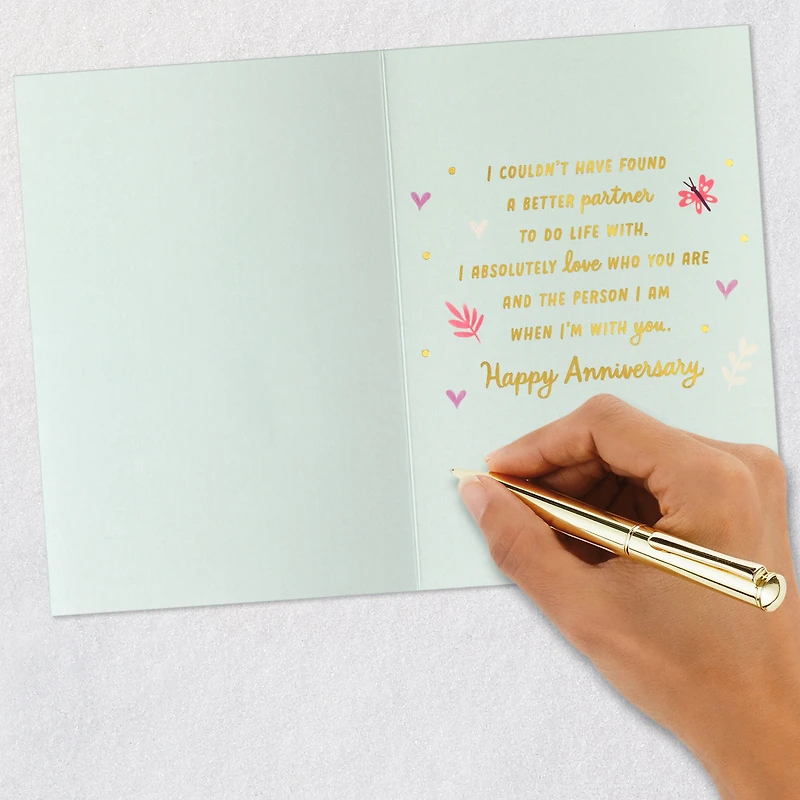 I COULDN'T HAVE FOUND
A BETTER partner
TO DO LIFE WITH.
I ABSOLUTELY love WHO YOU ARE
AND THE PERSON I AM
WHEN I'M WITH you.
Happy Anniversary